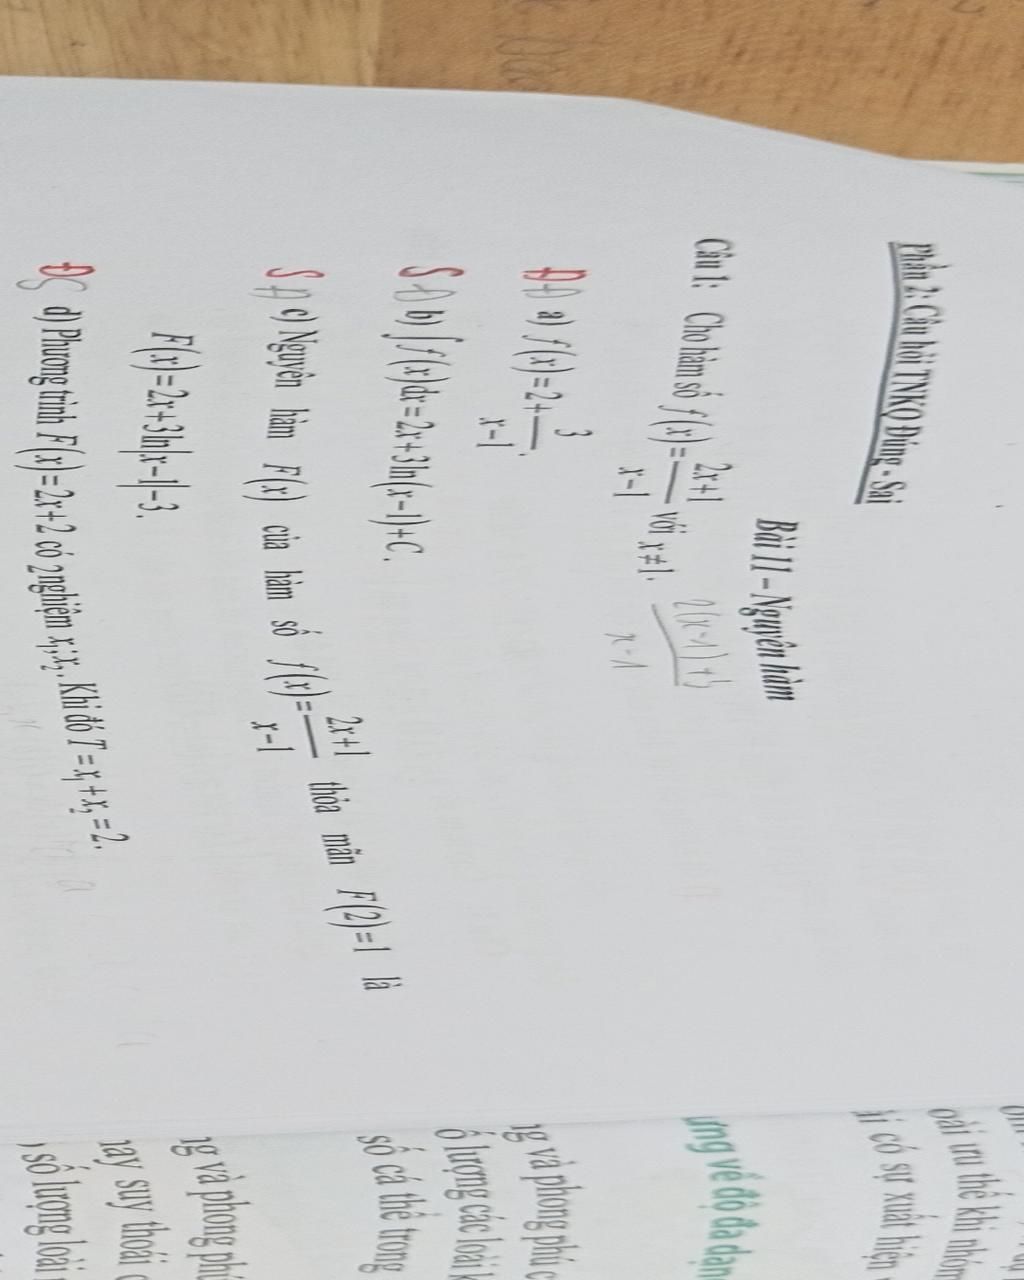 Phần 2: Câu hỏi TNKQ Đúng - Sai
Bài 11 – Nguyên hàm
Câu 1: Cho hàm số f(x) = (2x+1)/(x−1) với x ≠ 1.
(2(x-1)+3)/(x-1)
Đ Đ a) f(x) = 2 + 3/(x−1).
S Đ b) ∫f(x)dx = 2x+3ln(x−1)+C.
S Đ c) Nguyên hàm F(x) của hàm số f(x) = (2x+1)/(x−1) thỏa mãn F(2)=1 là
F(x) = 2x+3ln|x−1|−3.
Đ S d) Phương trình F(x) = 2x+2 có 2 nghiệm x₁; x₂. Khi đó T = x₁ + x₂ = 2.
ưng về độ đa dạn
oài ưu thế khi nhón
ài có sự xuất hiện
ng và phong phú c
ố lượng các loài k
số cá thể trong
ng và phong phú
hay suy thoái c
số lượng loài